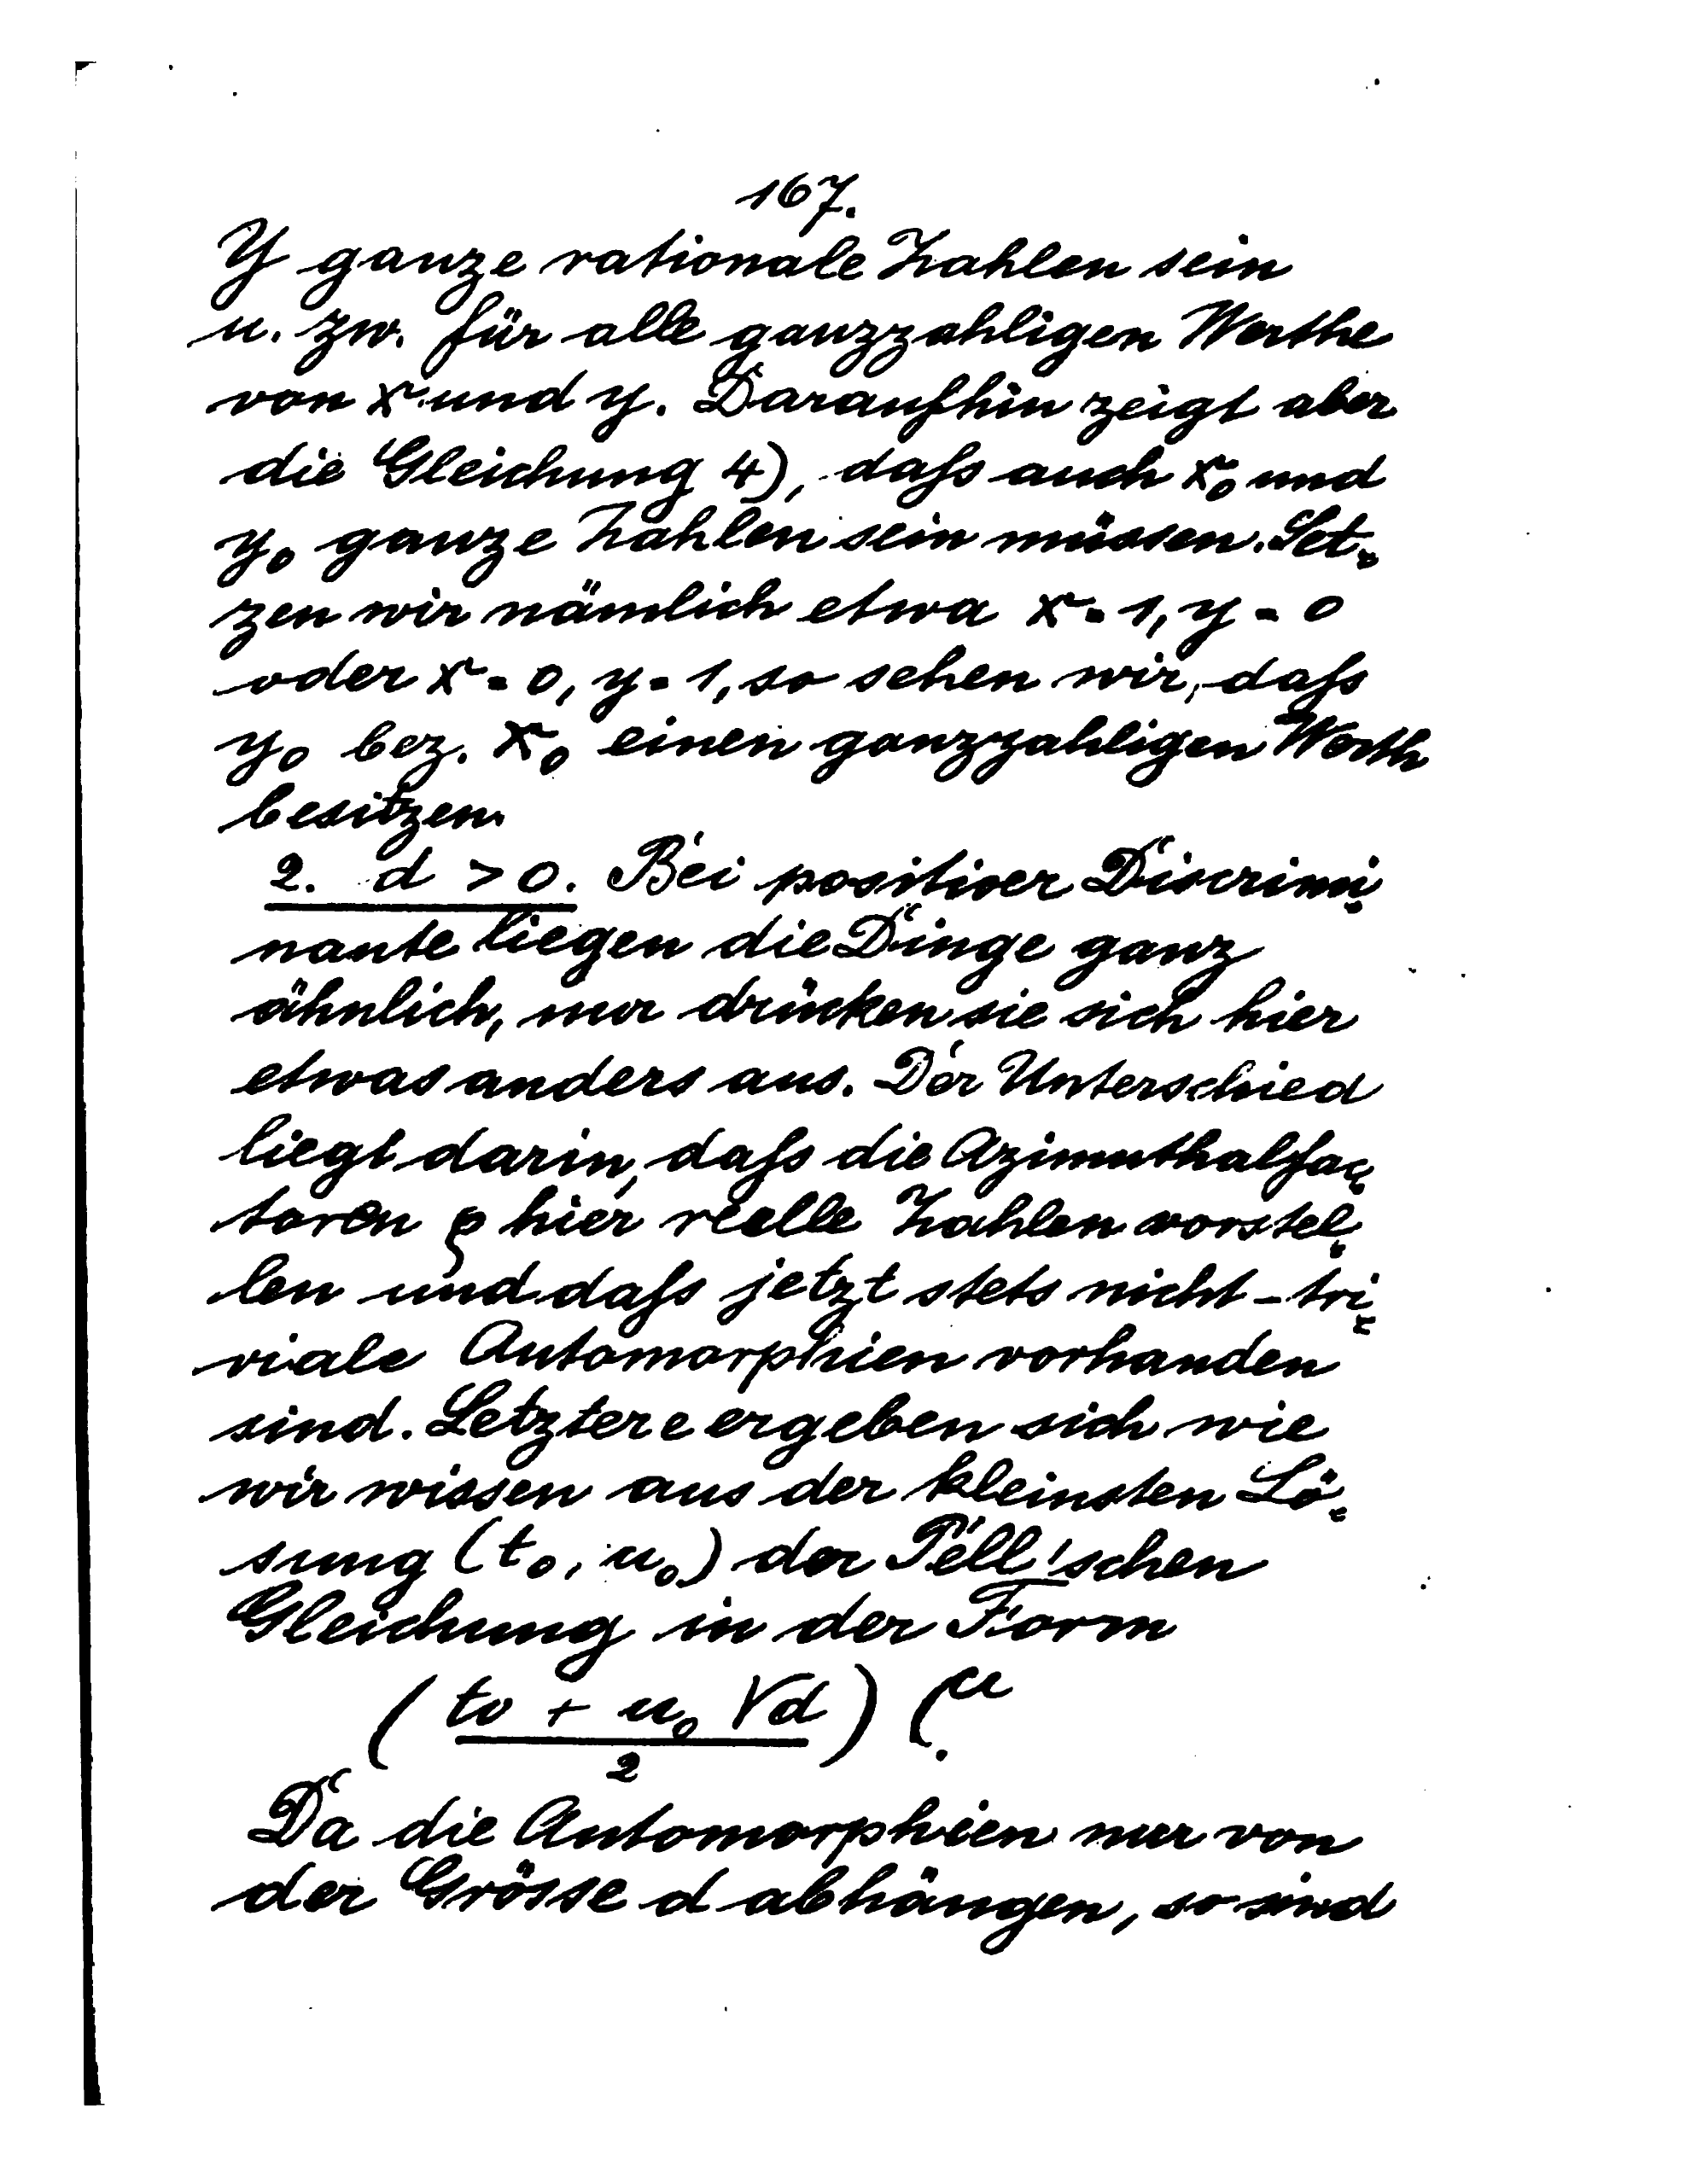 167.
Y ganze rationale Zahlen sein
u. zw. für alle ganzzahligen Werthe
von x und y. Daraufhin zeigt aber
die Gleichung 4), daſs auch x₀ und
y₀ ganze Zahlen sein müssen. Set-
zen wir nämlich etwa x = 1, y = 0
oder x = 0, y = 1, so sehen wir, daſs
y₀ bez. x₀ einen ganzzahligen Werth
besitzen.
2. d > 0. Bei positiver Discrimi-
nante liegen die Dinge ganz
ähnlich, nur drücken sie sich hier
etwas anders aus. Der Unterschied
liegt darin, daſs die Azimuthalfac-
toren ρ hier reelle Zahlen vorstel-
len und daſs jetzt stets nicht-tri-
viale Automorphien vorhanden
sind. Letztere ergeben sich wie
wir wissen aus der kleinsten Lö-
sung (t₀, u₀) der Pell'schen
Gleichung in der Form
( t₀ + u₀ √d / 2 ) ( μ.
Da die Automorphien nur von
der Grösse d abhängen, so sind